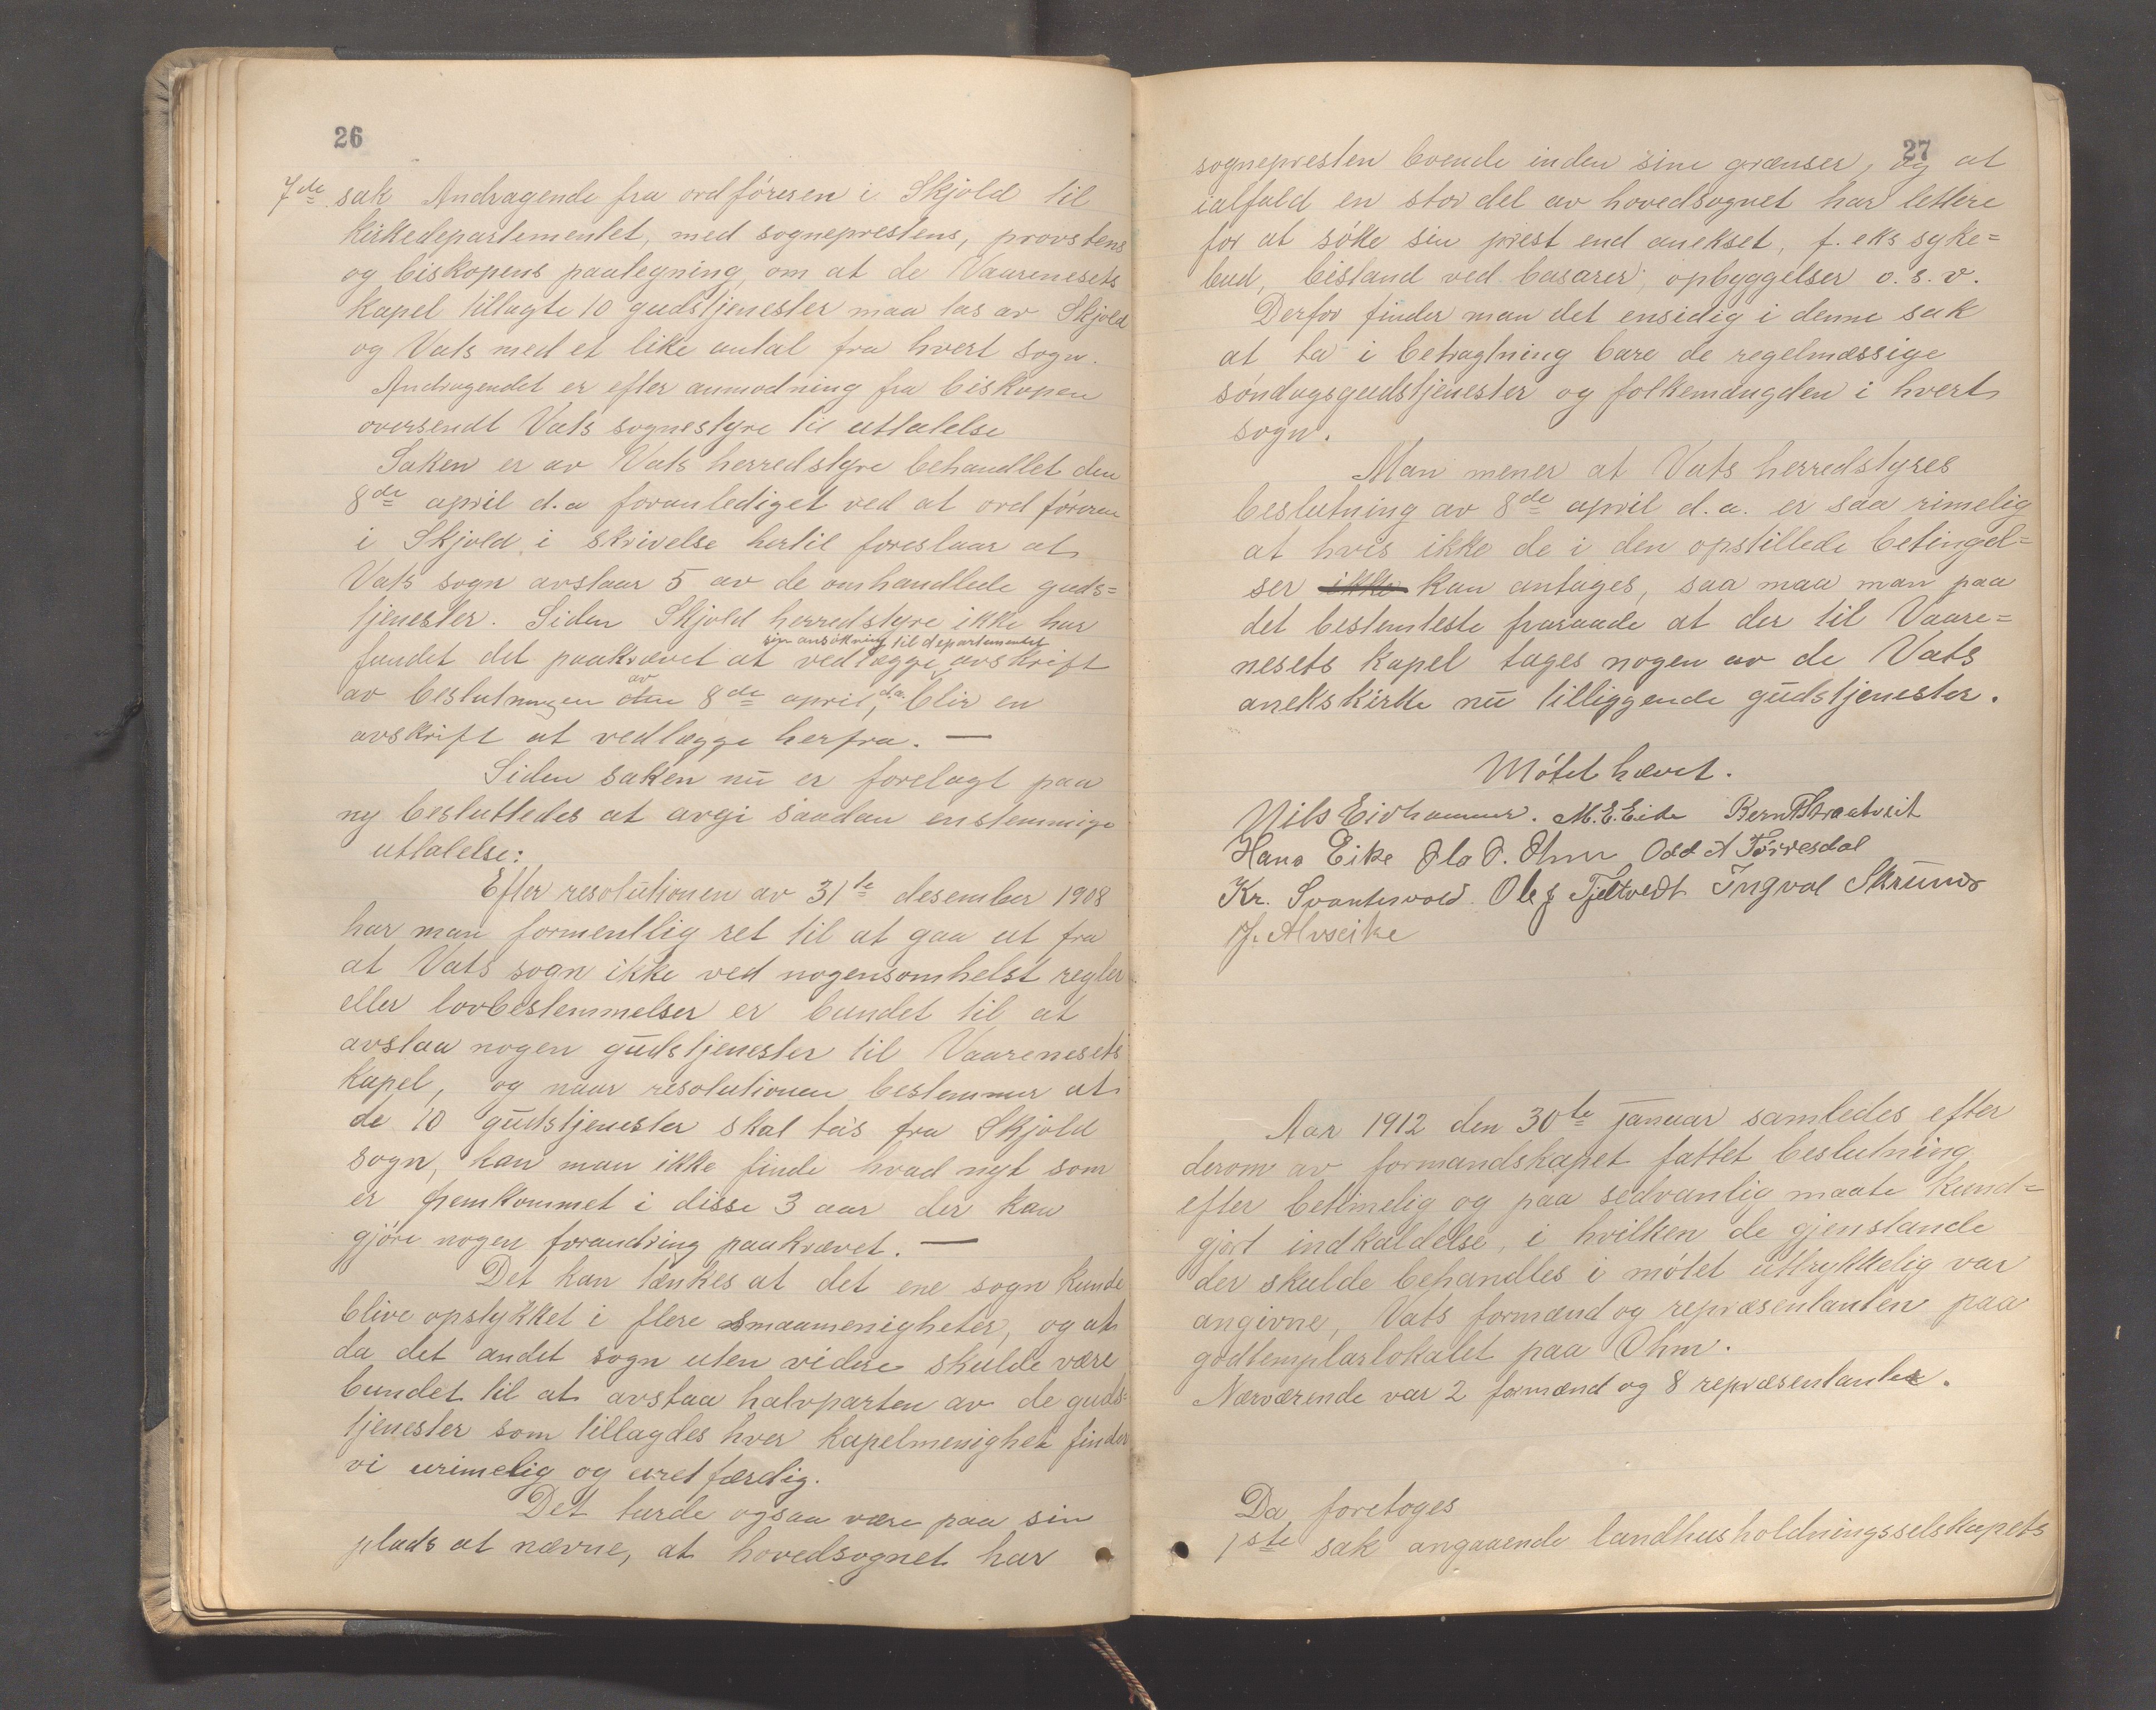 26
7de sak Andragende fra ordføreren i Skjold til
kirkedepartementet, med sogneprestens, provstens
og biskopens paategning, om at de Vaarenesets
kapel tillagte 10 gudstjenester maa tas av Skjold
og Vats med et like antal fra hvert sogn.
Andragendet er efter anmodning fra biskopen
oversendt Vats sognestyre til uttalelse
Saken er av Vats herredstyre behandlet den
8de april d.a foranlediget ved at ordføreren
i Skjold i skrivelse hertil foreslaar at
Vats sogn avstaar 5 av de omhandlede guds=
tjenester. Siden Skjold herredstyre ikke har
sin ansøkning til departementet
fundet det paakrævet at vedlægge avskrift
av beslutningen av 8de april d.a. blir en
avskrift at vedlægge herfra. —
Siden saken nu er forelagt paa
ny besluttedes at avgi saadan enstemmige
uttalelse:
Efter resolutionen av 31te desember 1908
har man formentlig ret til at gaa ut fra
at Vats sogn ikke ved nogensomhelst regler
eller lovbestemmelser er bundet til at
avstaa nogen gudstjenester til Vaarenesets
kapel, og naar resolutionen bestemmer at
de 10 gudstjenester skal tas fra Skjold
sogn, kan man ikke finde hvad nyt som
er fremkommet i disse 3 aar der kan
gjøre nogen forandring paakrævet. —
Det kan tænkes at det ene sogn kunde
blive opstykket i flere smaamenigheter, og at
da det andet sogn uten videre skulde være
bundet til at avstaa halvparten av de guds-
tjenester som tillagdes hver kapelmenighet finder
vi urimelig og uretfærdig.
Det turde ogsaa være paa sin
plads at nævne, at hovedsognet har
27
sognepresten boende inden sine grænser, og at
ialfald en stor del av hovedsognet har lettere
for at søke sin prest end anekset, f. eks syke=
bud, bistand ved basarer, opbyggelser o. s. v.
Derfor finder man det ensidig i denne sak
at ta i betragtning bare de regelmæssige
søndagsgudstjenester og folkemængden i hvert
sogn.
Man mener at Vats herredstyres
beslutning av 8de april d.a. er saa rimelig
at hvis ikke de i den opstillede betingel=
ser ikke kan antages, saa maa man paa
det bestemteste fraraade at der til Vaare=
nesets kapel tages nogen av de Vats
anekskirke nu tilliggende gudstjenester.
Møtet hævet.
Nils Eidhammer. M. E. Eide Bernt Straatveit
Hans Eike Ola O. Ohm Odd A Tørresdal
Kr. Svantesvold. Ole J Fjeltvedt Ingval Skrunes
J. Alvseike
Aar 1912 den 30te januar samledes efter
derom av formandskapet fattet beslutning
efter betimelig og paa sedvanlig maate kund=
gjort indkaldelse, i hvilken de gjenstande
der skulde behandles i møtet uttrykkelig var
angivne, Vats formænd og repræsentanten paa
godtemplarlokalet paa Ohm.
Nærværende var 2 formænd og 8 repræsentanter.
Da foretoges
1ste sak angaaende landhusholdningsselskapets